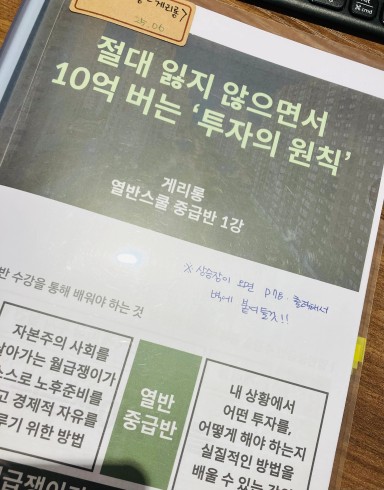 게리롱>
24.06
절대 잃지 않으면서
10억 버는 ‘투자의 원칙’
게리롱
열반스쿨 중급반 1강
※ 상승장이 오면 P76. 출력해서
벽에 붙여둘것!!
반 수강을 통해 배워야 하는 것
자본주의 사회를
살아가는 월급쟁이가
스스로 노후준비를
고 경제적 자유를
루기 위한 방법
열반
중급반
내 상황에서
어떤 투자를,
어떻게 해야 하는지
실질적인 방법을
배울 수 있는
cmd